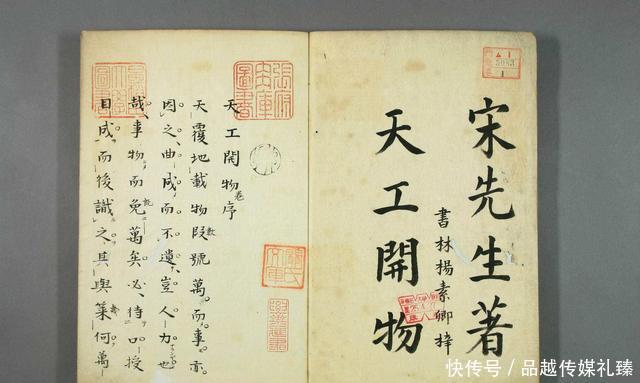 宋先生著
書林揚素卿梓
天工開物
天工開物卷序
天覆地載物段號萬而事亦
因之曲成而不遺豈人力也
哉、事物而免萬矣、必待口授
目成、而後識之、其與何萬
快传号/品越传媒礼臻